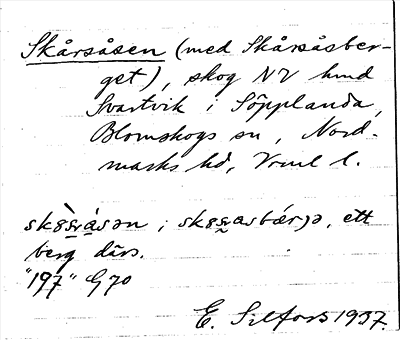 Skårsåsen (med Skårsåsber-
get), skog NV hmd
Svartvik i Söpplanda,
Blomskogs sn, Nord-
marks hd, Vrml l.
berg därs.
"197" G70
E. Silfors 1937.